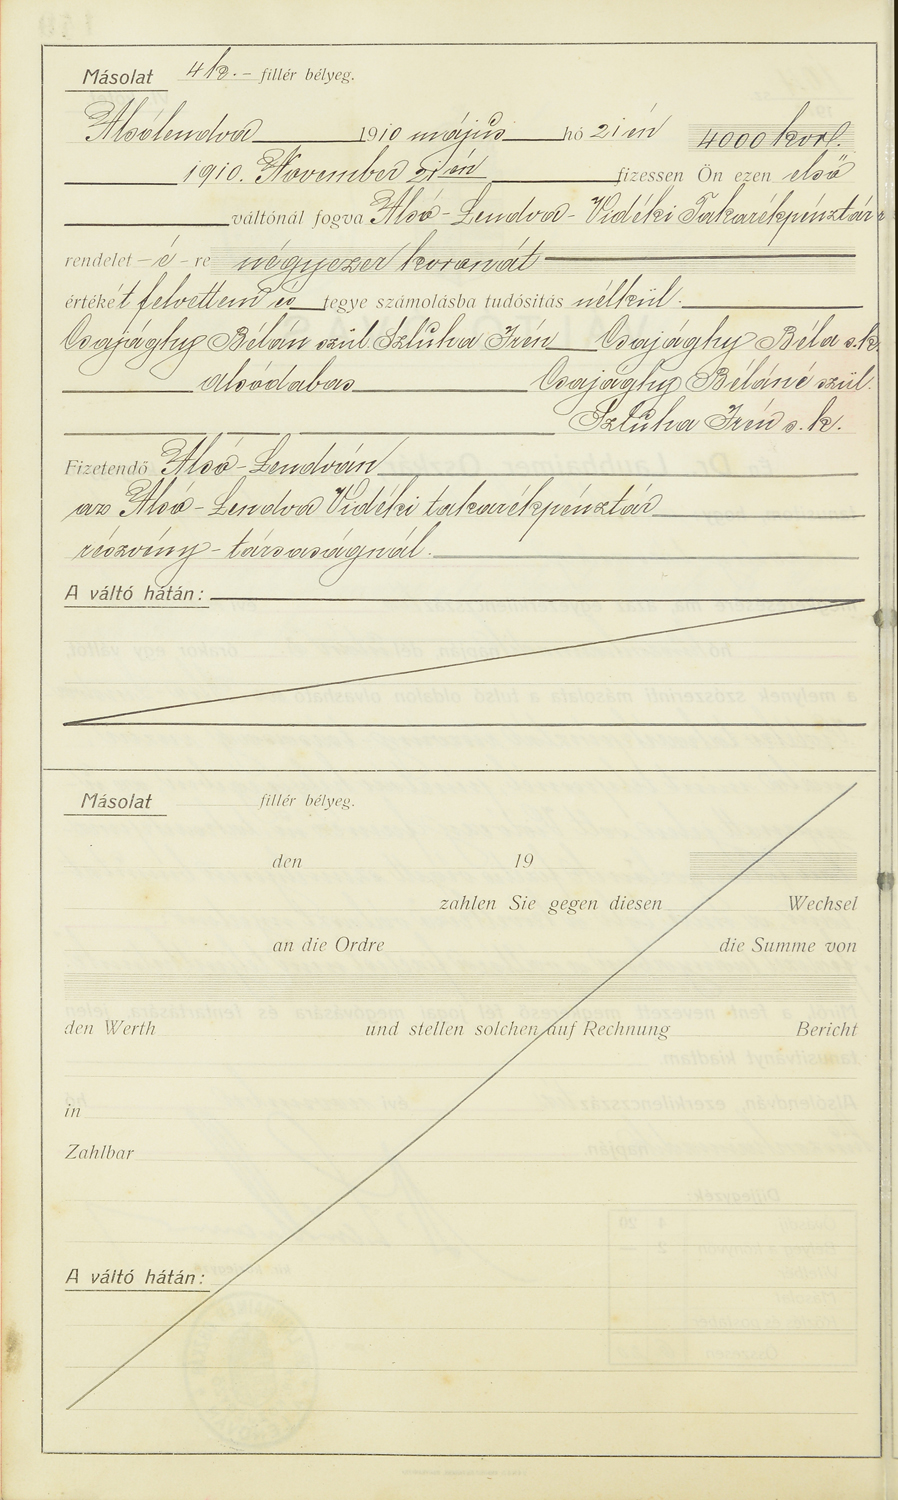 Másolat 4 k. – fillér bélyeg.
Alsólendva 1910 május hó 21 én 4000 kor.
1910. November 21 én fizessen Ön ezen első
váltónál fogva Alsó-Lendva-Vidéki Takarékpénztár
rendelet – é – re négyezer koronát
értékét felvettem és tegye számolásba tudósítás nélkül.
Csajághy Bélán szül. Szluha Irén Csajághy Béla s.k.
alsódabas Csajághy Béláné szül.
Szluha Irén s. k.
Fizetendő Alsó-Lendván
az Alsó-Lendva Vidéki takarékpénztár
részvény-társaságnál.
A váltó hátán:
Másolat fillér bélyeg.
den 19
zahlen Sie gegen diesen Wechsel
an die Ordre die Summe von
den Werth und stellen solchen auf Rechnung Bericht
in
Zahlbar
A váltó hátán: